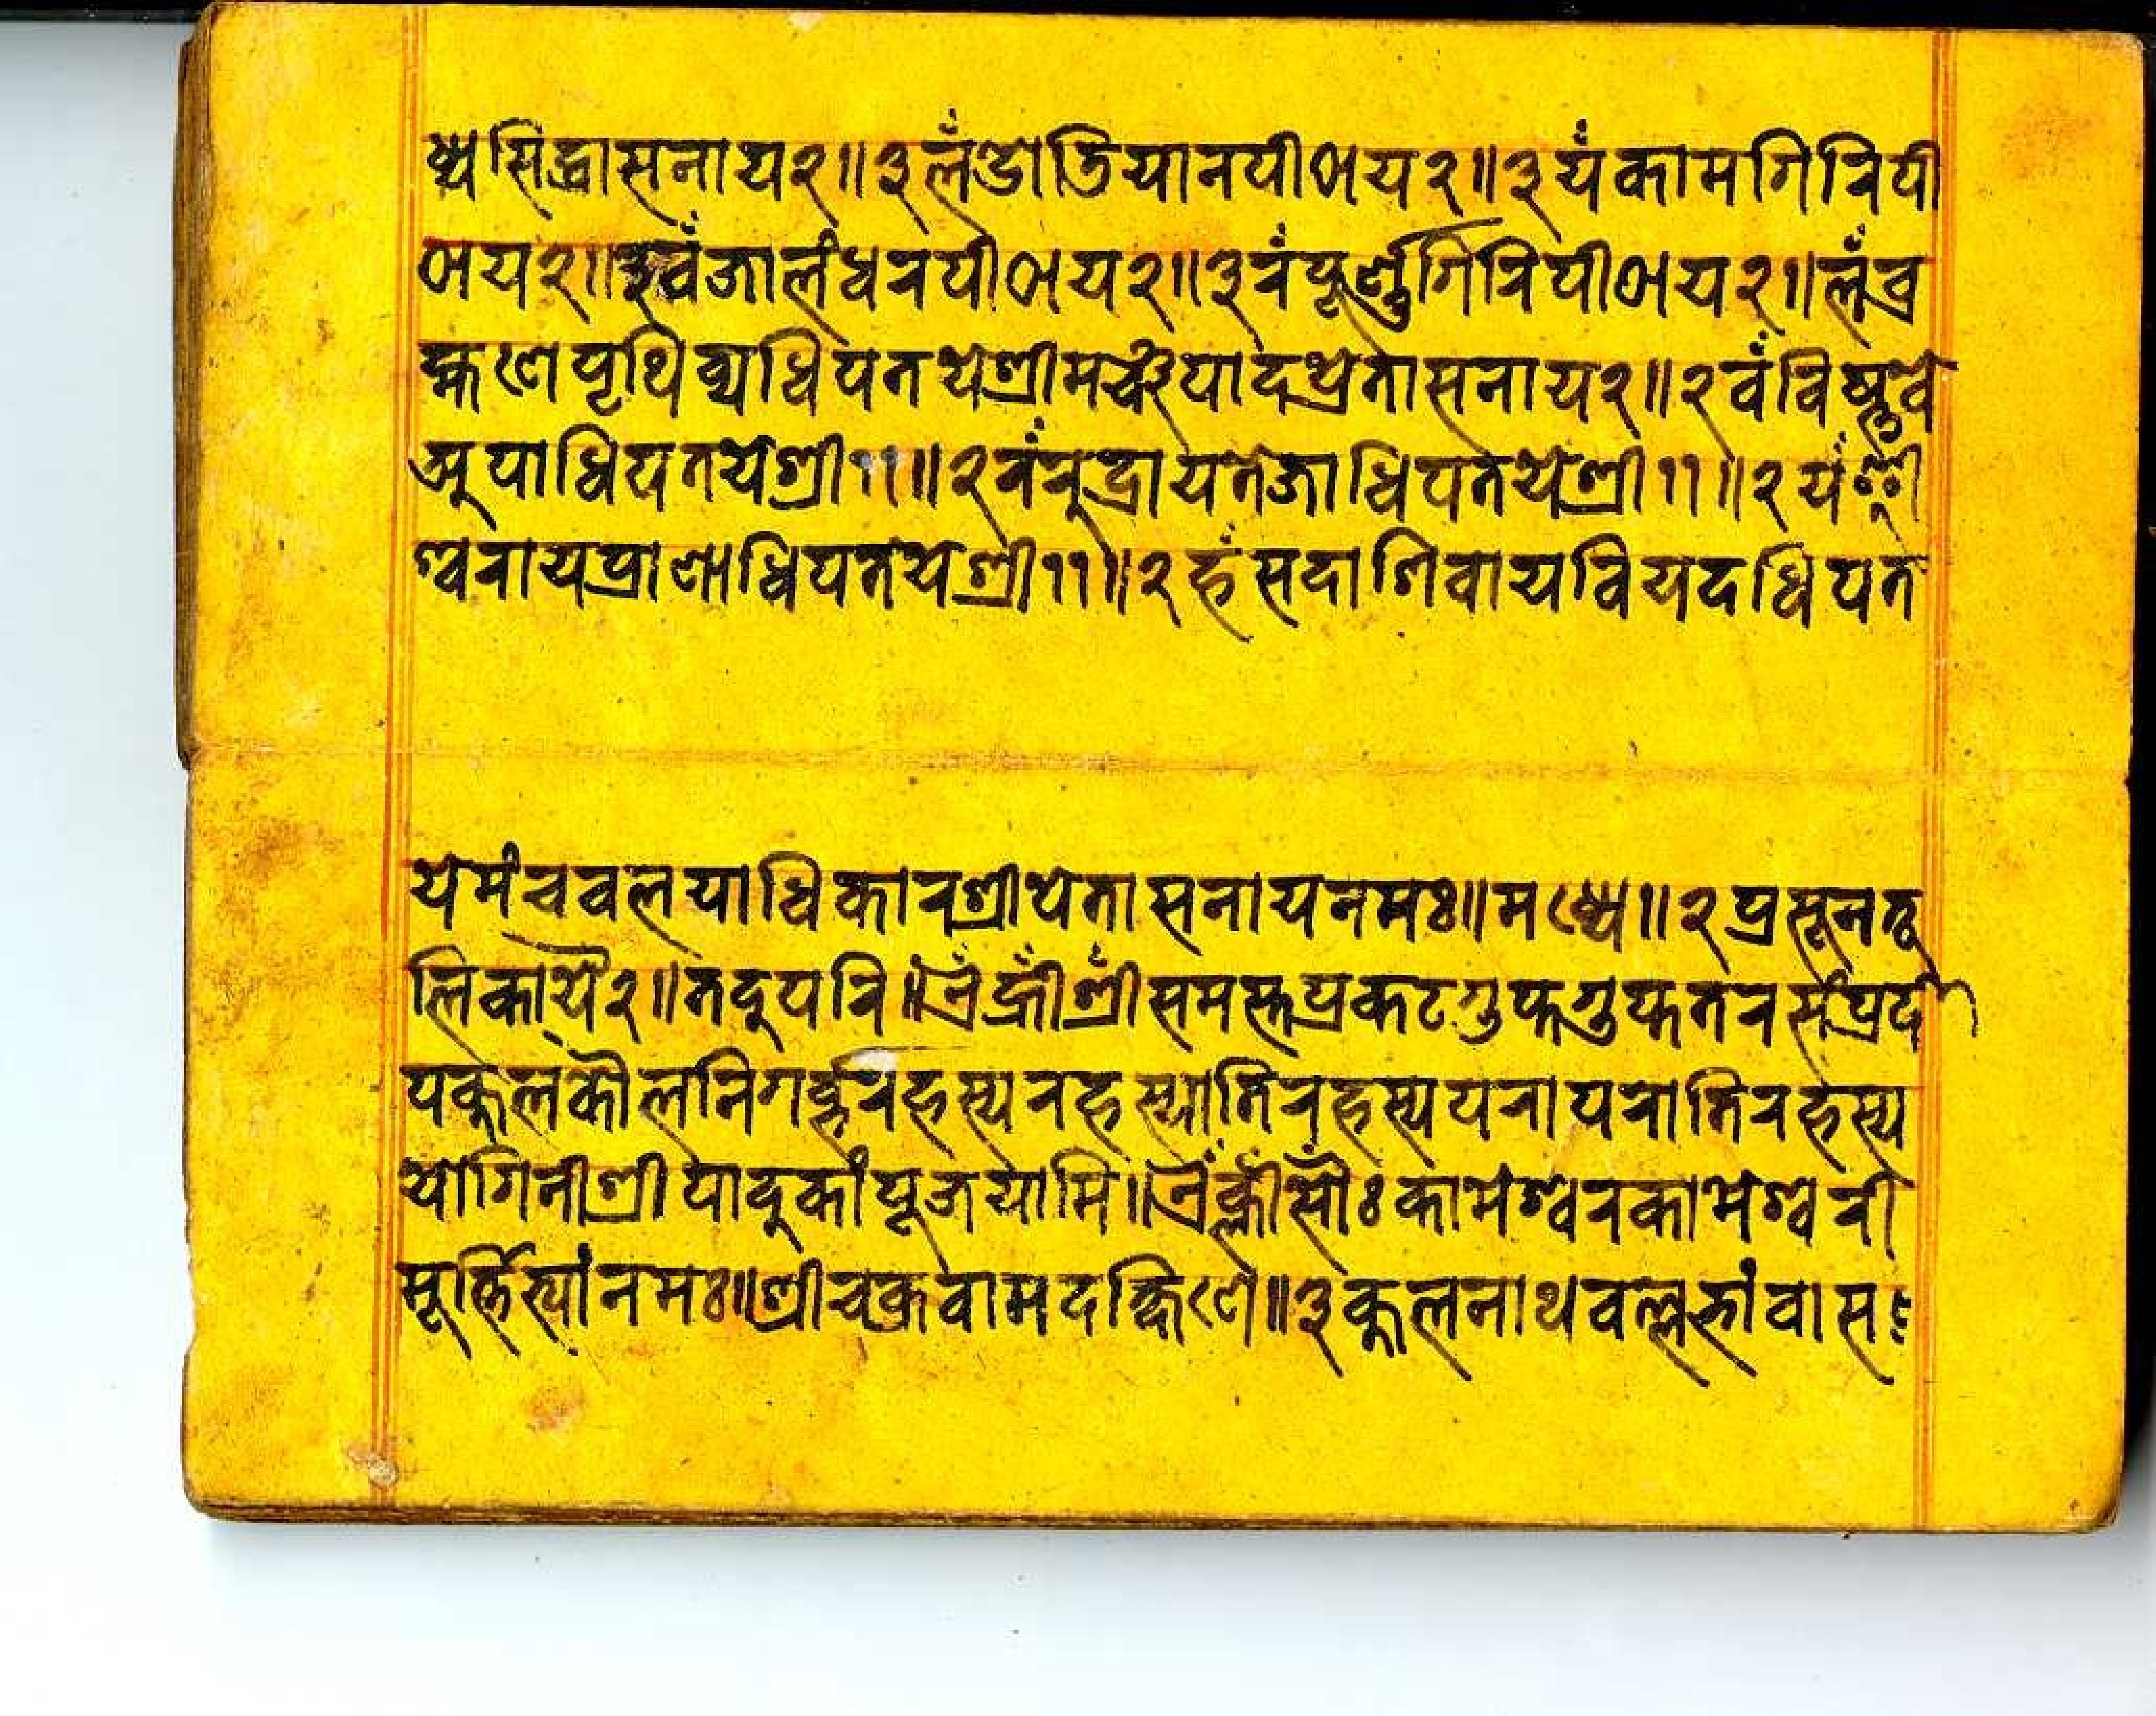 ध्यसिद्धासनाय२॥३लँओडियानपीठाय२॥३यँकामगिरिपी
ठाय२॥३वँजालंधरपीठाय२॥३रँपूर्ण्णगिरिपीठाय२॥लँब्र
ह्मणेपृथिव्यधिपतयेश्रीमञ्चपादप्रेतासनाय२॥२वँविष्णवे
अपाधिपतयेश्री११॥२रँरुद्रायतेजाधिपतयेश्री११॥२यँई
श्वरायप्राणाधिपतयेश्री११॥२हँसदाशिवायवियदधिपत
येमंचवलयाधिकारश्रीप्रेतासनायनमः॥मध्ये॥२प्रसूनतू
लिकायै२॥तदुपरि॥ऐँह्रीँश्रीँसमस्तप्रकटगुप्तगुप्ततरसंप्रदा
यकुलकौलनिगर्ब्भरहस्यरहस्यातिरहस्यपरापरातिरहस्य
योगिनीश्रीपादुकांपूजयामि॥ऐँक्लीँसौः कामेश्वरकामेश्वरी
मूर्त्तिभ्यांनमः॥श्रीचक्रवामदक्षिणे॥३कुलनाथवल्लभांवास